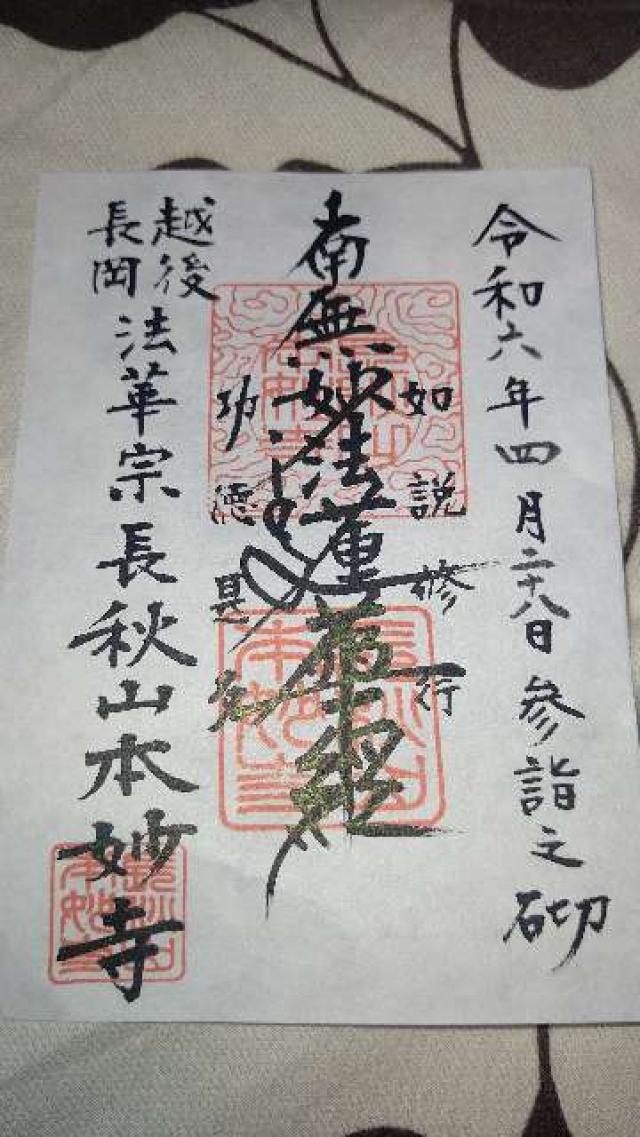 令和六年四月二十八日参詣之砌
如説修行
南無妙法蓮華経
功徳是名
越後
長岡
法華宗長秋山本妙寺